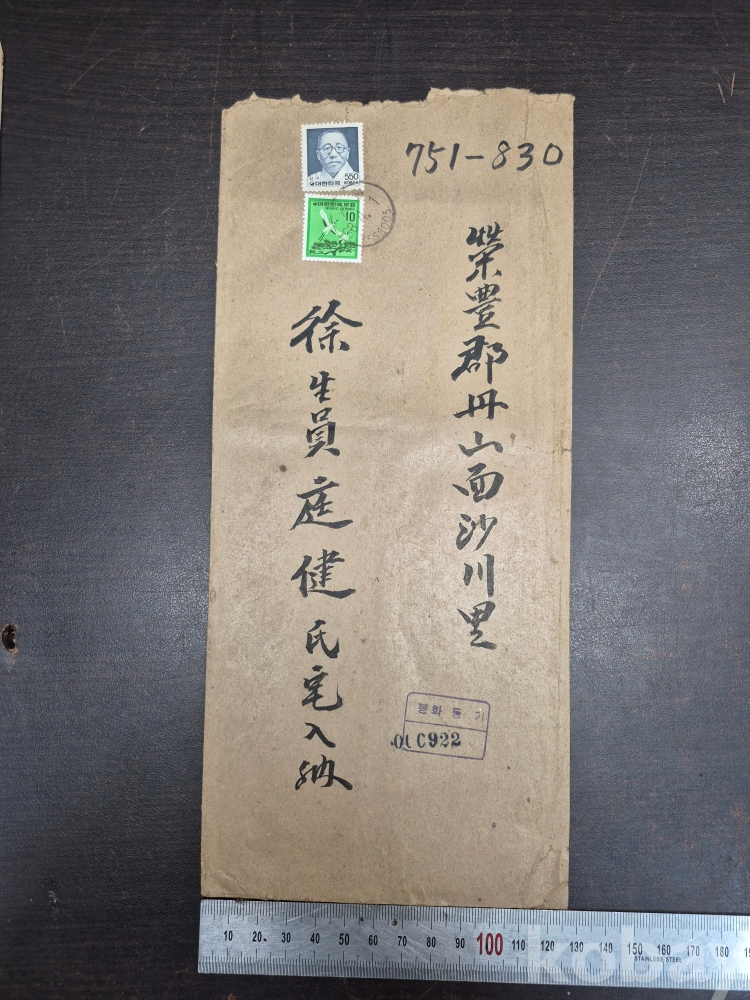 751-830
榮豊郡丹山面沙川里
徐生員庭健氏宅入納
550
대한민국
대한민국우표
10
봉화 등기
922
10 20 30 40 50 60 70 80 90 100 110 120 130 140 150 160 170 180
STAINLESS STEEL
kobay